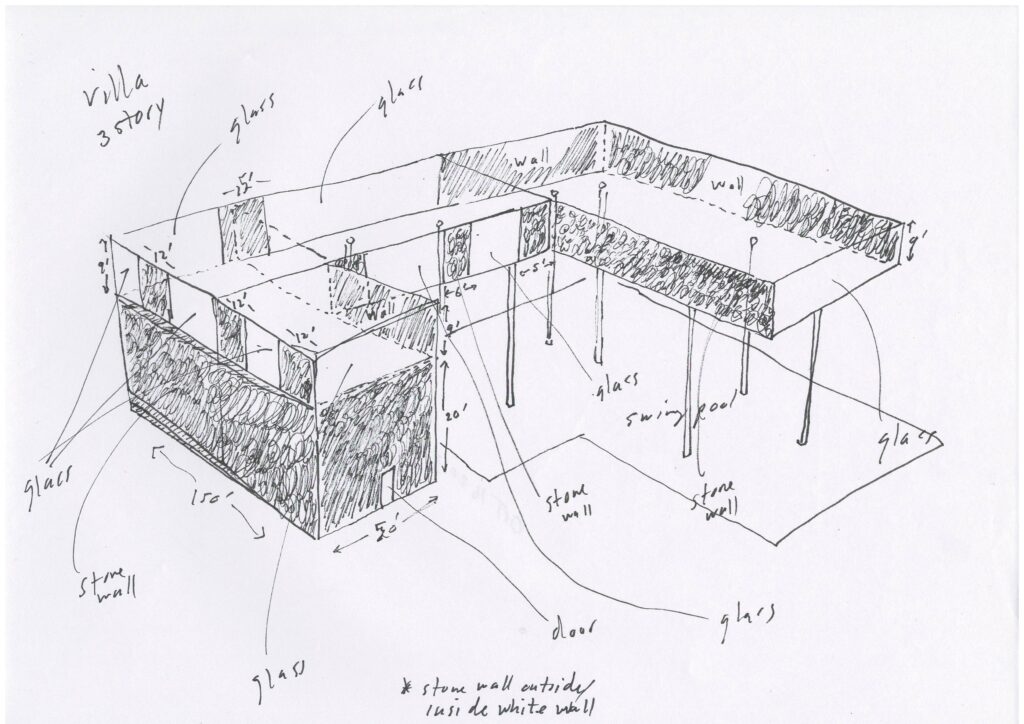 villa
3 story
glass
glass
wall
wall
12'
12'
12'
9'
9'
wall
6'
5'
9'
20'
glass
swimg pool
glass
glass
150'
stone
wall
stone
wall
stone
wall
door
glass
glass
* stone wall outside/
inside white wall